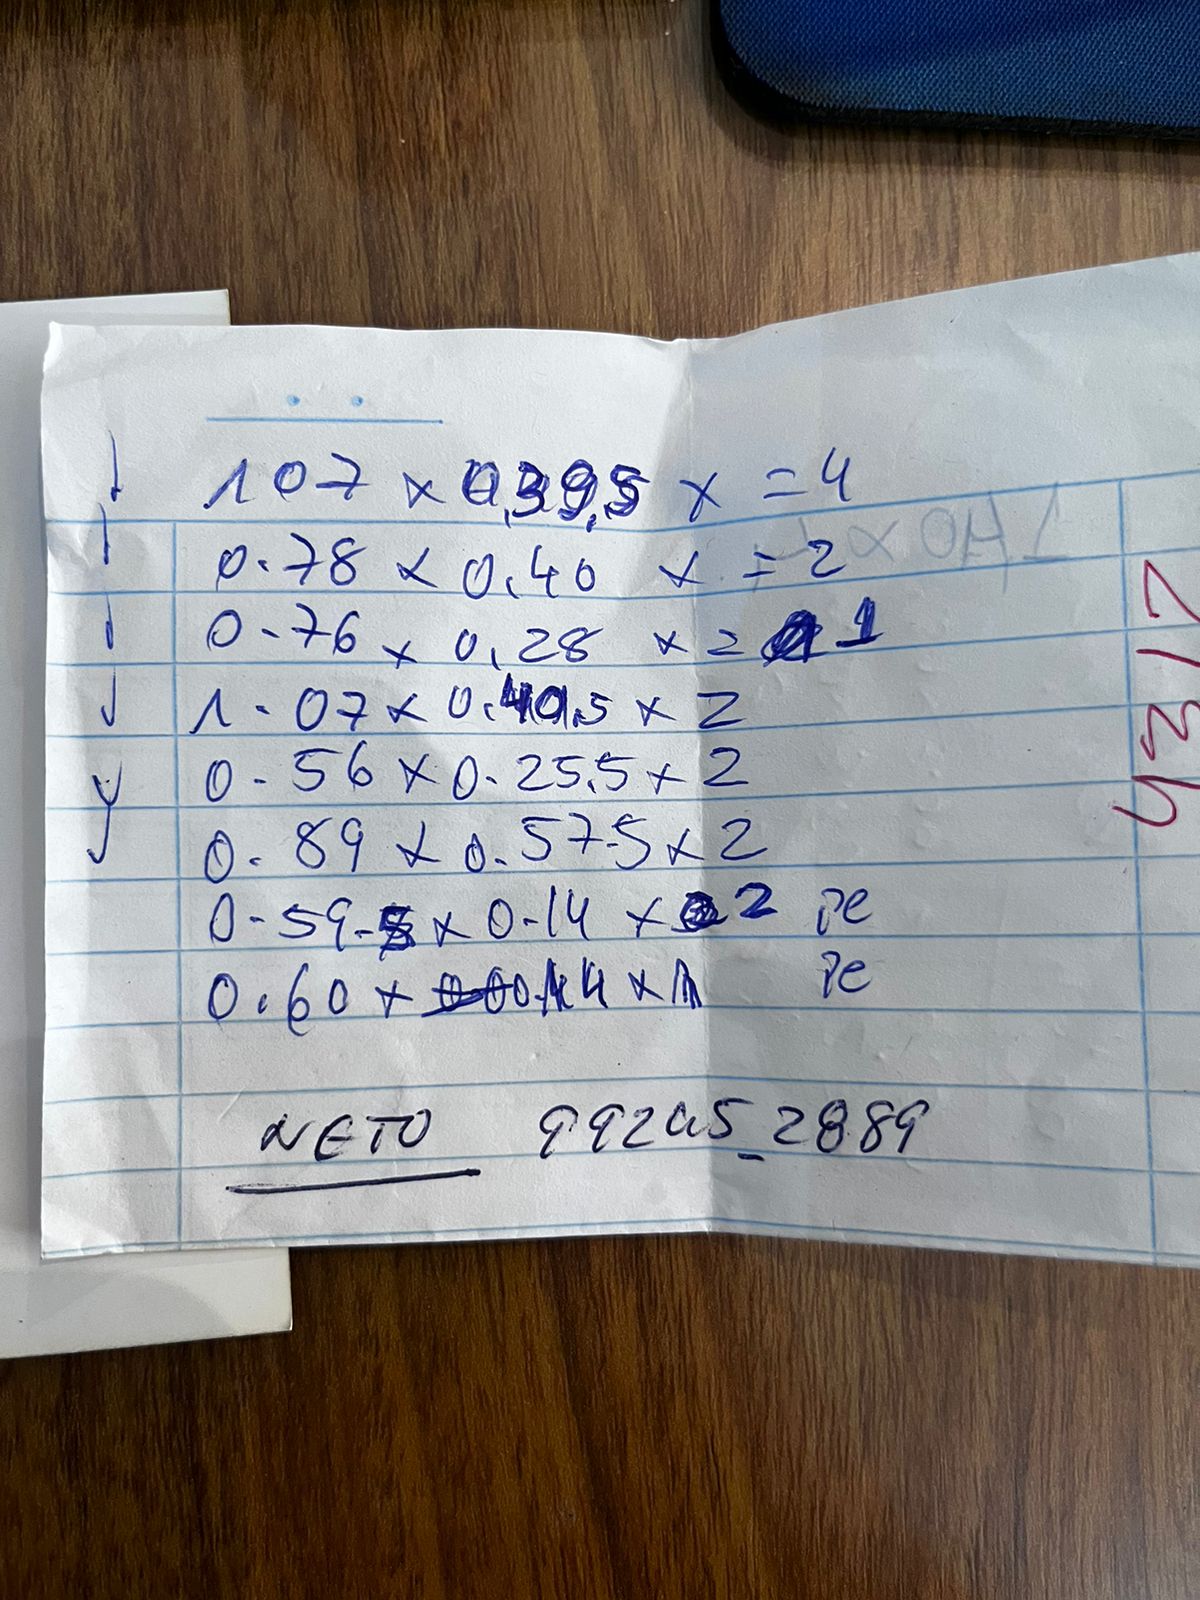 107 x 0,39,5 x = 4
0.78 x 0.40 x = 2
0.76 x 0,28 x = 1
1.07 x 0.40.5 x 2
0.56 x 0.25.5 x 2
0.89 x 0.57.5 x 2
0.59.5 x 0.14 x 2 Pe
0.60 x 0.14 x 1 Pe
NETO 99245_2889
4317